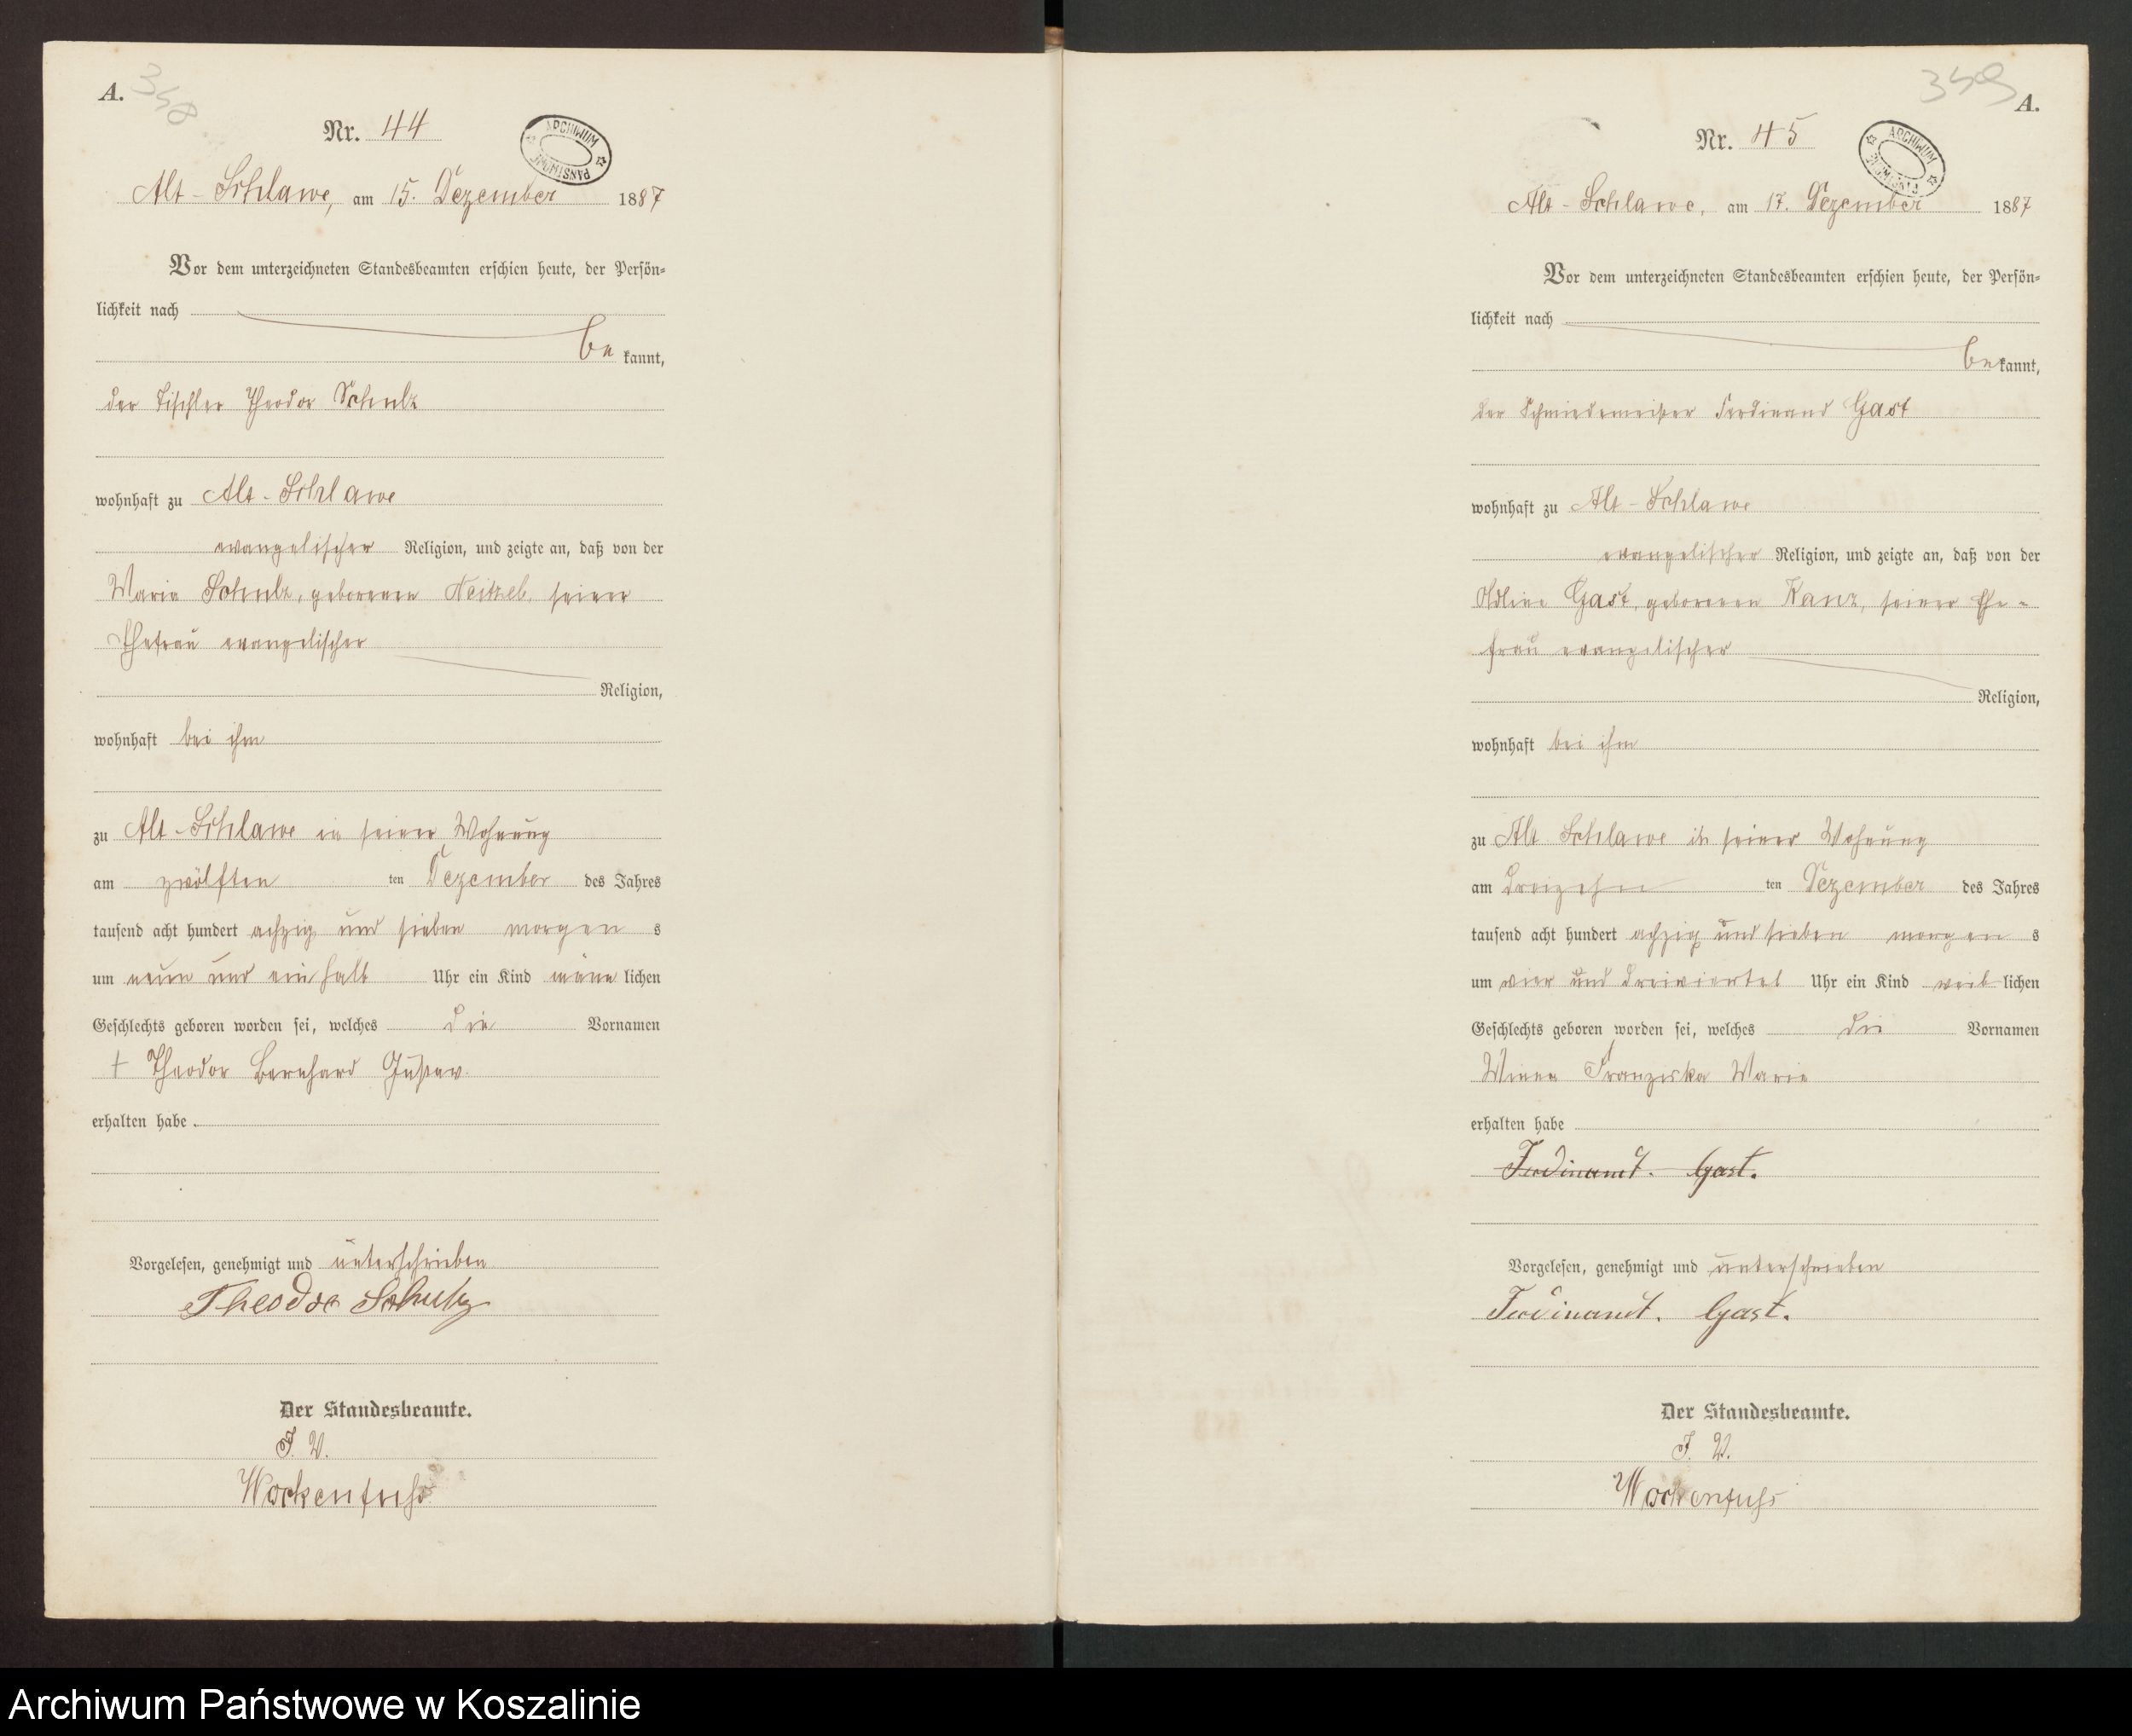 A.
358
Nr. 44
ARCHIWUM PAŃSTWOWE
Alt-Schlawe, am 15. Dezember 1887
Vor dem unterzeichneten Standesbeamten erschien heute, der Persön-
lichkeit nach
be kannt,
der Tischler Theodor Schulz
wohnhaft zu Alt-Schlawe
evangelischer Religion, und zeigte an, daß von der
Marie Schulz, geborenen Neitzel, seiner
Ehefrau evangelischer
Religion,
wohnhaft bei ihm
zu Alt-Schlawe in seiner Wohnung
am zwölften ten Dezember des Jahres
tausend acht hundert achzig und sieben morgen s
um neun und ein halb Uhr ein Kind männ lichen
Geschlechts geboren worden sei, welches die Vornamen
† Theodor Bernhard Gustav
erhalten habe.
Vorgelesen, genehmigt und unterschrieben
Theodor Schulz
Der Standesbeamte.
J. V.
Wockenfuhs
359
A.
Nr. 45
ARCHIWUM PAŃSTWOWE
Alt-Schlawe, am 17. Dezember 1887
Vor dem unterzeichneten Standesbeamten erschien heute, der Persön-
lichkeit nach
be kannt,
der Schmiedemeister Ferdinand Gast
wohnhaft zu Alt-Schlawe
evangelischer Religion, und zeigte an, daß von der
Gast, geborenen Kanz, seiner Ehe-
frau evangelischer
Religion,
wohnhaft bei ihm
zu Alt Schlawe in seiner Wohnung
am dreizehn ten Dezember des Jahres
tausend acht hundert achzig und sieben morgen s
um vier und dreiviertel Uhr ein Kind weib lichen
Geschlechts geboren worden sei, welches die Vornamen
Minna Franziska Marie
erhalten habe
Ferdinamt. Gast.
Vorgelesen, genehmigt und unterschrieben
Ferdinamt. Gast.
Der Standesbeamte.
J. V.
Wockenfuhs
Archiwum Państwowe w Koszalinie